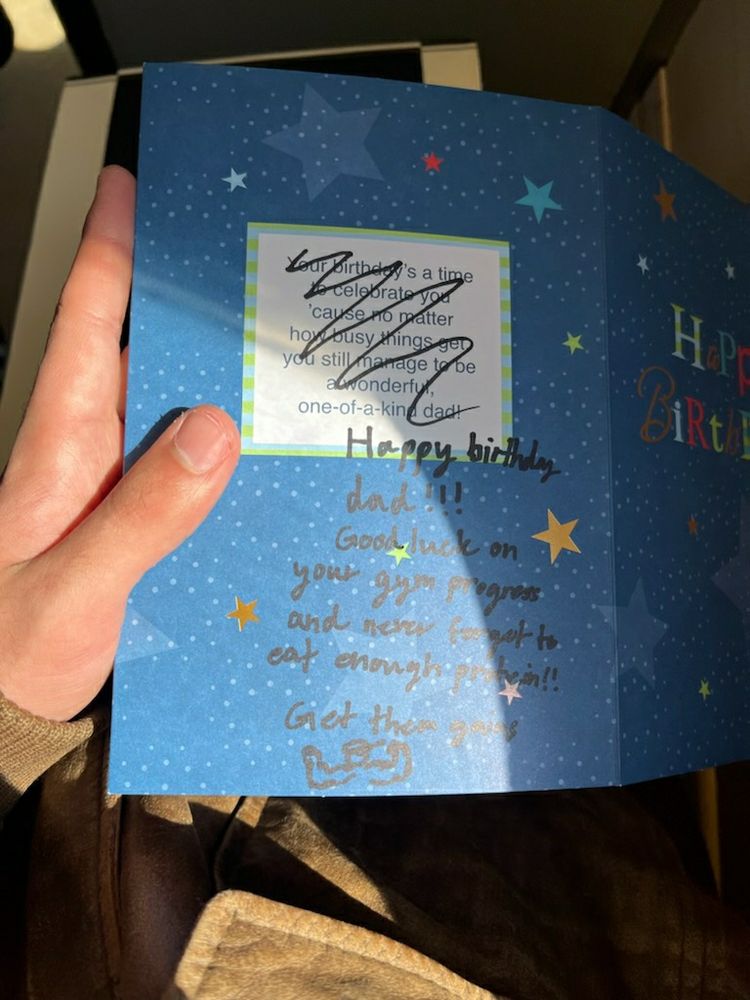 Your birthday's a time
to celebrate you
'cause no matter
how busy things get
you still manage to be
a wonderful,
one-of-a-kind dad!
Happy birthday
dad!!!
Good luck on
your gym progress
and never forget to
eat enough protein!!
Get them gains
HaPp
BiRtH